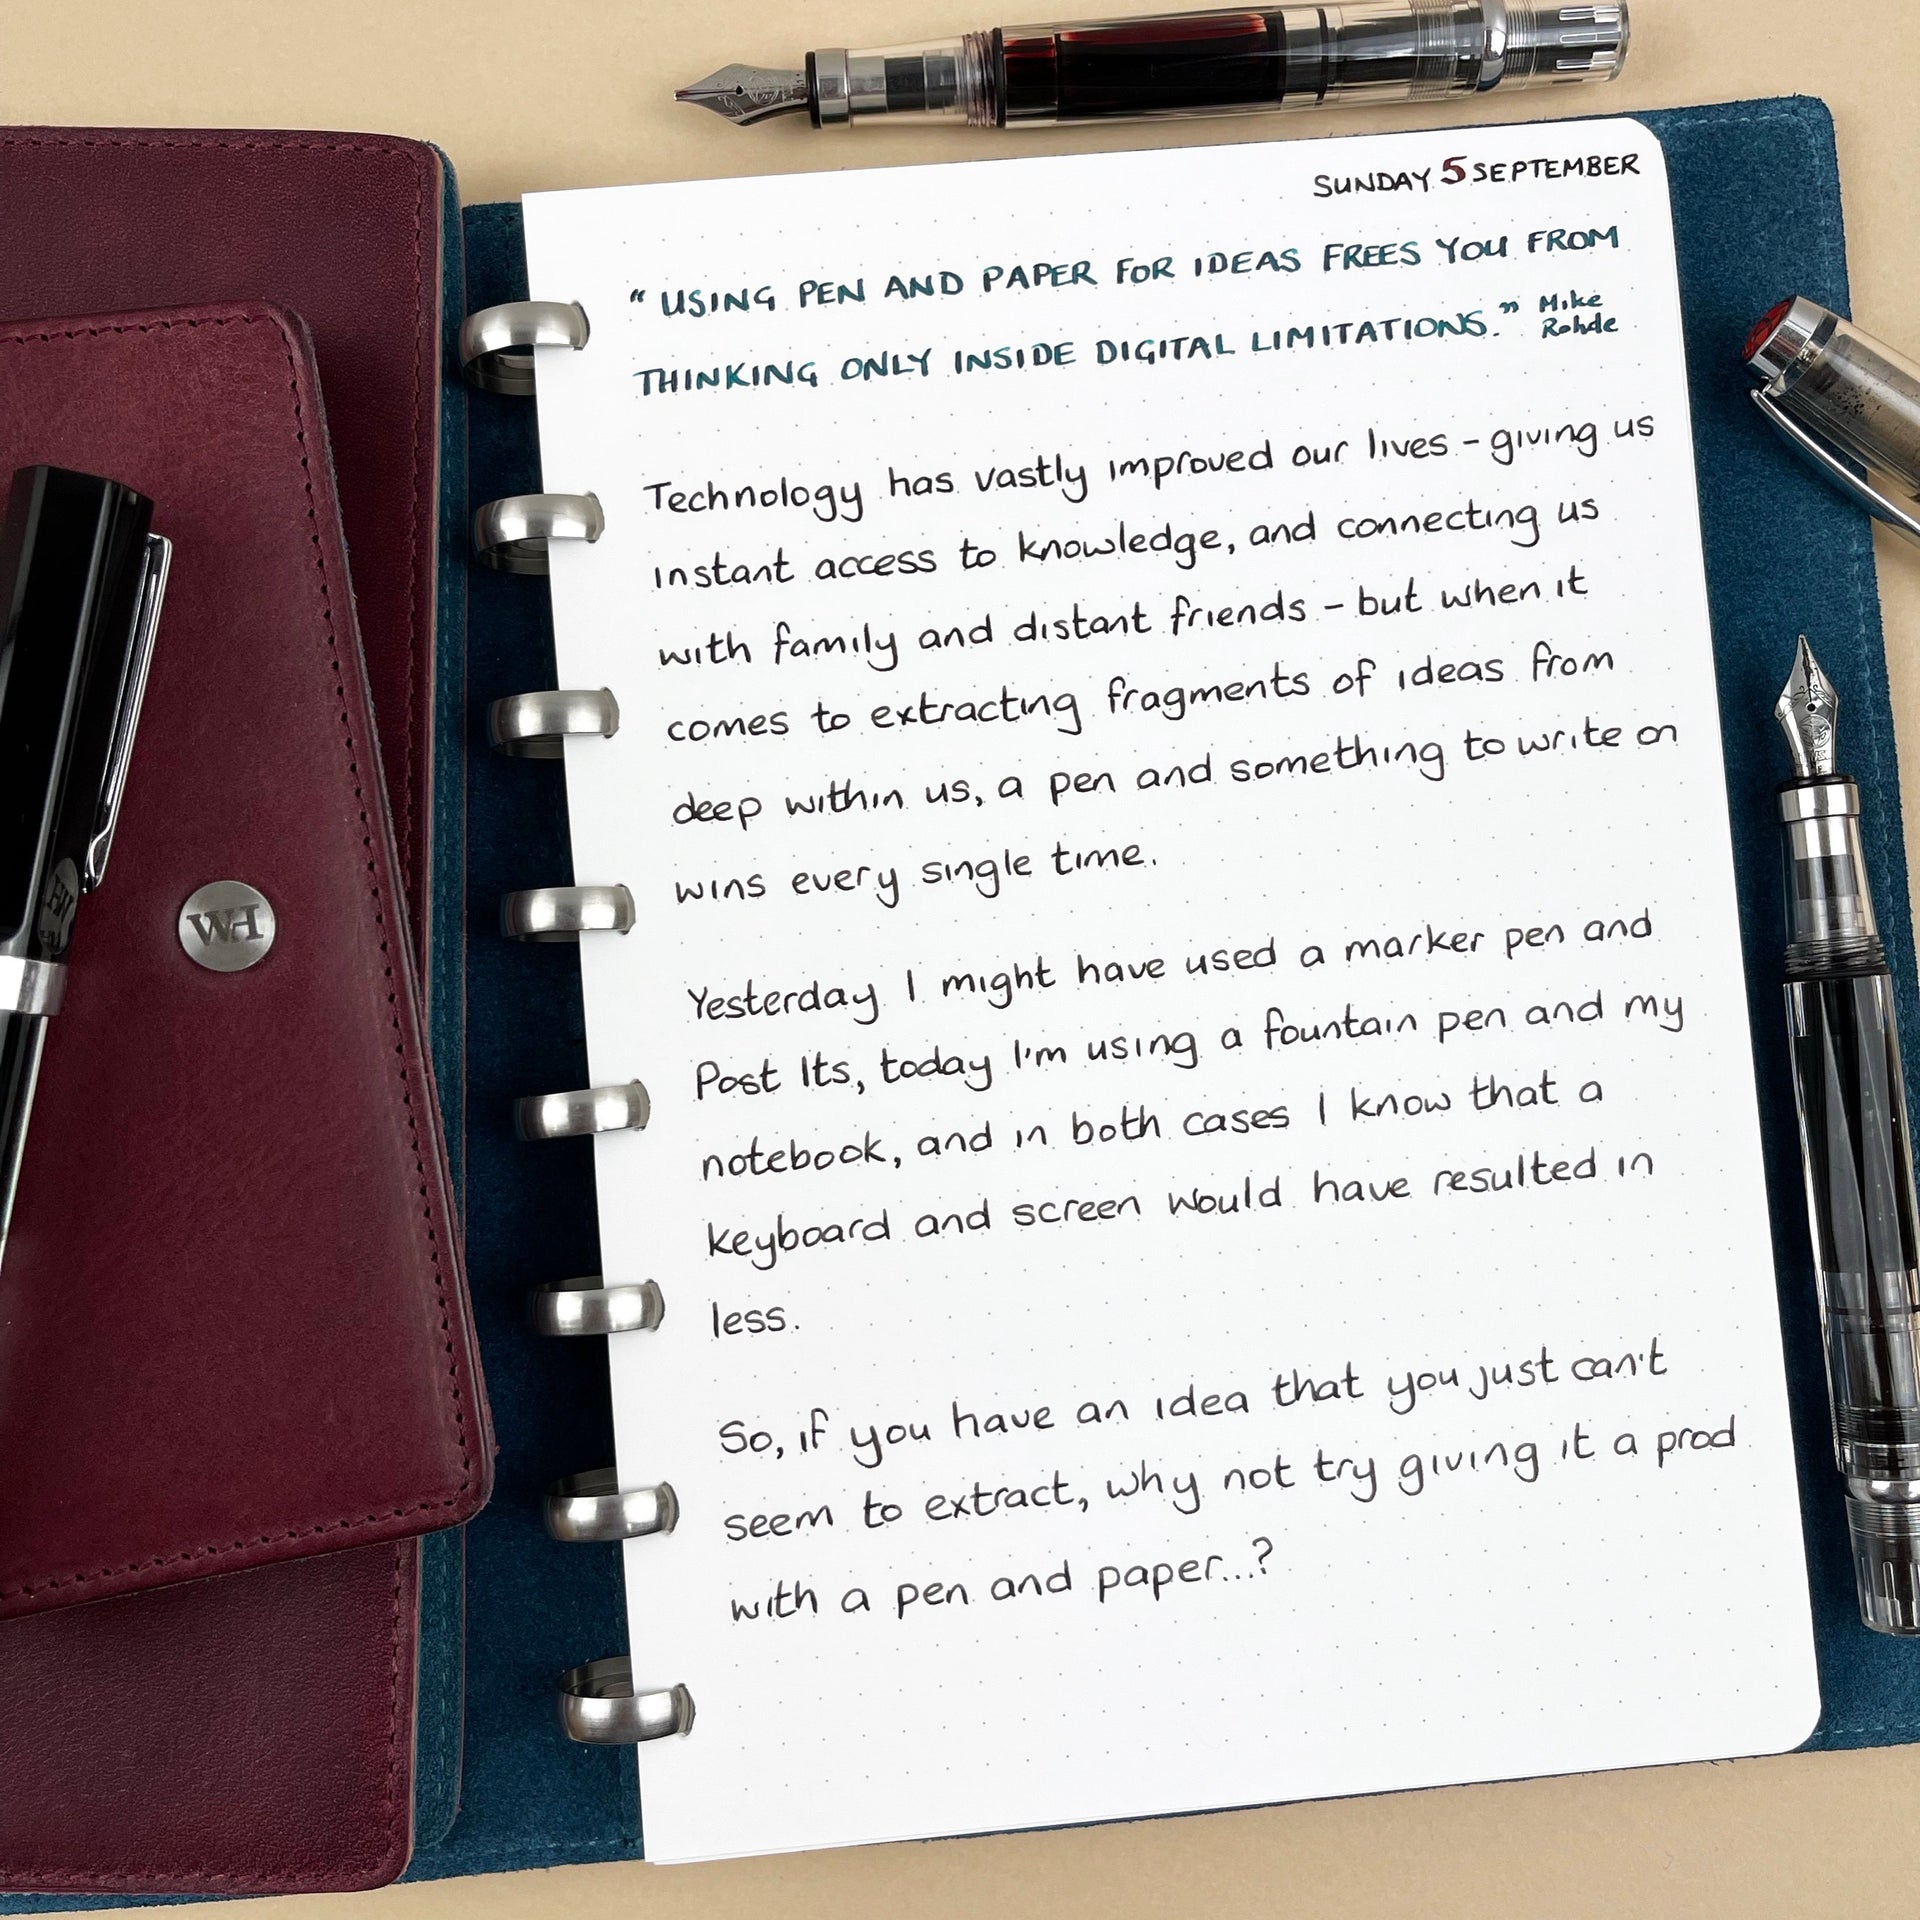 SUNDAY 5 SEPTEMBER
“ USING PEN AND PAPER FOR IDEAS FREES YOU FROM
THINKING ONLY INSIDE DIGITAL LIMITATIONS.” Mike
Rohde
Technology has vastly improved our lives - giving us
instant access to knowledge, and connecting us
with family and distant friends - but when it
comes to extracting fragments of ideas from
deep within us, a pen and something to write on
wins every single time.
Yesterday I might have used a marker pen and
Post Its, today I'm using a fountain pen and my
notebook, and in both cases I know that a
keyboard and screen would have resulted in
less.
So, if you have an idea that you just can't
seem to extract, why not try giving it a prod
with a pen and paper...?
WH